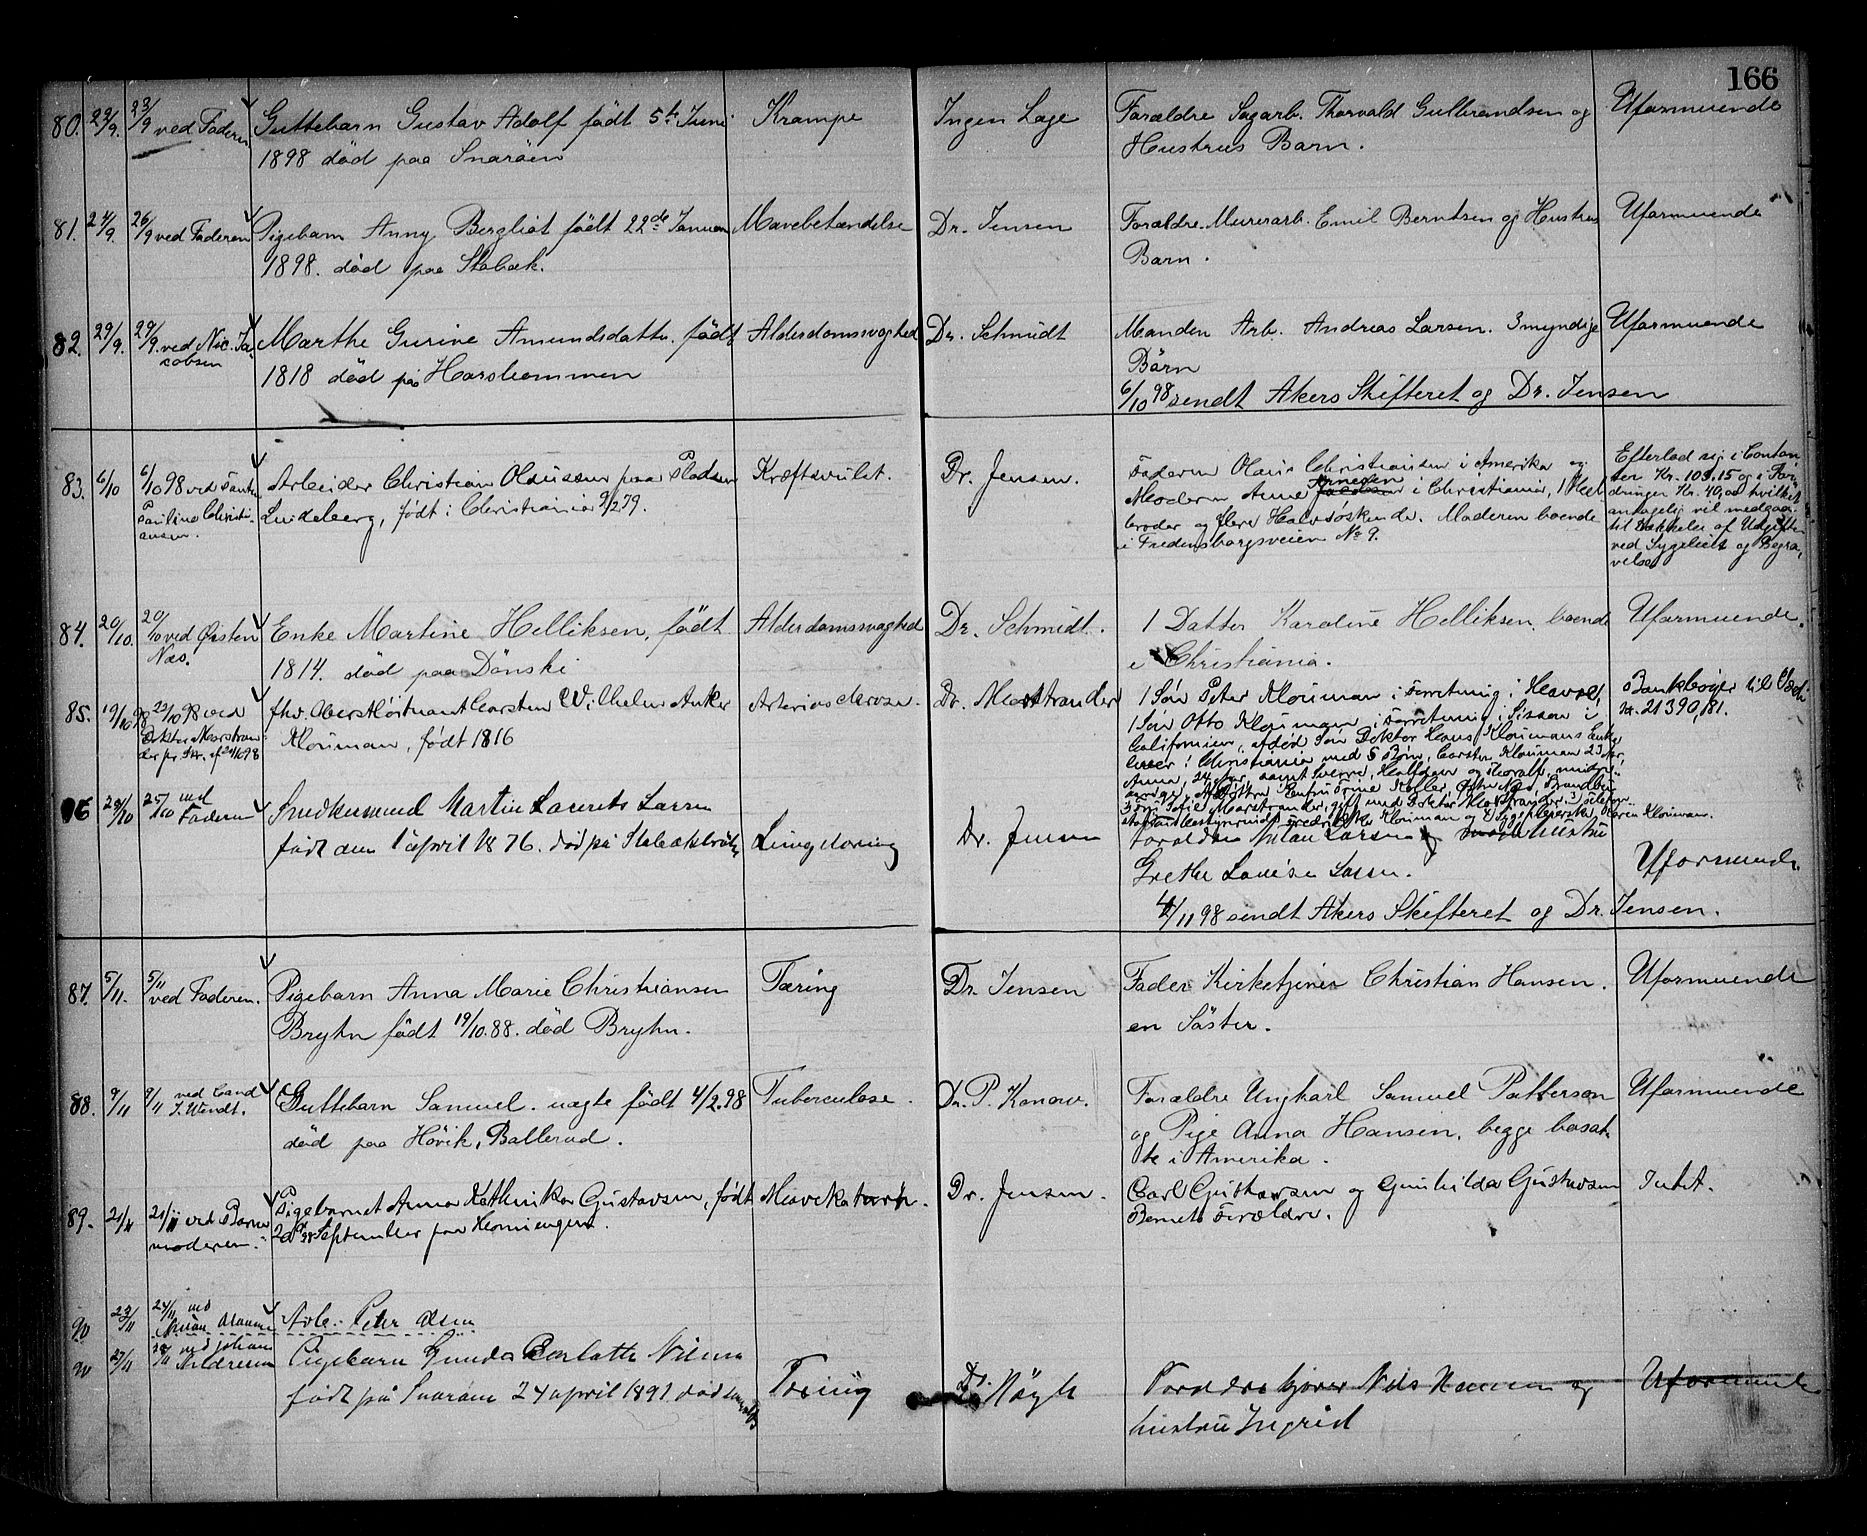 166
80. 22/9. 23/9 ved Faderen Guttebarn Gustav Adolf født 5te Juni Krampe Ingen Læge Forældre Sagarb. Thorvald Gulbrandsen og Uformuende
1898 død paa Snarøen Hustrus Barn.
81. 24/9. 26/9 ved Faderen Pigebarn Anny Bergliot født 22de Januar Mavebetændelse Dr. Jensen Forældre Murerarb. Emil Berntsen og Hustrus Uformuende
1898. død paa Stabæk. Barn.
82. 29/9. 29/9. ved Nic. Ja- Marthe Gurine Amundsdatter. født Alderdomssvaghed Dr. Schmidt Manden Arb. Andreas Larsen. 3 myndige Uformuende
cobsen 1818 død på Børn
6/10 98 sendt Akers Skifteret og Dr. Jensen
83. 6/10 6/10 98 ved Tanten Arbeider Christian Olaussen paa Pladsen Kræftsvulst. Dr. Jensen. Faderen Olaus Christiansen i Amerika og Efterlod sig i Contan-
Pauline Christi- født i Christiania 9/2 79. Moderen Anne Arnesen i Christiania, 1 Hel- ter Kr. 109.15 og i For-
ansen. broder og flere Halvsøskende. Moderen boende dringer Kr. 40,00 hvilket
i Fredensborgsveien No 9. antagelig vil medgaa
til Dækkelse af Udgifter
ved Sygeleiet og Begra-
velse
84. 20/10. 20/10 ved Østen Enke Martine Helliksen, født Alderdomssvaghed Dr. Schmidt. 1 Datter Karoline Helliksen, boende Uformuende.
Næs. 1814. død paa Dønski i Christiania.
85. 19/10 98 22/10 98 ved fhv. Oberstløitnant Carsten Wilhelm Anker Arteriosclerose. Dr. Marstrander 1 Søn Peter Klouman i Forretning i Havre, Bankbøger til Værdi
Doktor Marstran- Klouman, født 1816 1 Søn Otto Klouman i Forretning i Sisson i Kr. 21390,81.
der pr. Skr. af Californien, afdød Søn Doktor Hans Kloumans Enke
lever i Christiania med 5 Børn, Carsten Klouman 23 Aar,
Anna, 24 Aar, samt Sverre, Halfdan og Thoralf, mindre-
Sofie Marstrander, gift med Doktor Marstrander,
Klouman og Karen Klouman.
86 24/10 25/10 ved Smedsvend Martin Laurits Larsen Dr. Jensen Forældre Larsen og Hustru
Faderen født den 1 april 1876. død på Lungetæring Grethe Lovise Larsen. Uformuende.
4/11 98 sendt Akers Skifteret og Dr. Jensen.
87. 5/11. 5/11 ved Faderen. Pigebarn Anna Marie Christiansen Tæring Dr. Jensen Fader Kirketjener Christian Hansen. Uformuende
Bryhn født 19/10.88. død Bryhn. en Søster.
88. 9/11 9/11 ved Cand Guttebarn Samuel. uægte født 4/2.98 Tuberculose. Dr. P. Konow. Forældre Ungkarl Samuel Patterson Uformuende
J. Wendt. død paa Høvik, Ballerud. og Pige Anna Hansen, begge bosat-
te i Amerika.
89. 21/11 21/11 ved Barne- Pigebarnet Anna Kathrinka Gustavsen, født Mavekatarrh. Dr. Jensen. Carl Gustavsen og Gunhilda Gustavsen Intet.
moderen. 20 September paa Barnets Forældre.
90 23/11 24/11 ved Arb. Peter Olsen
90 27/11 ved Johan Pigebarn Gunda Nilsen
Andresen født på Snarøen 24 april 1891. død Tæring Dr. Høgh Forældre Nils Hansen og Uformuende
hustru Ingrid